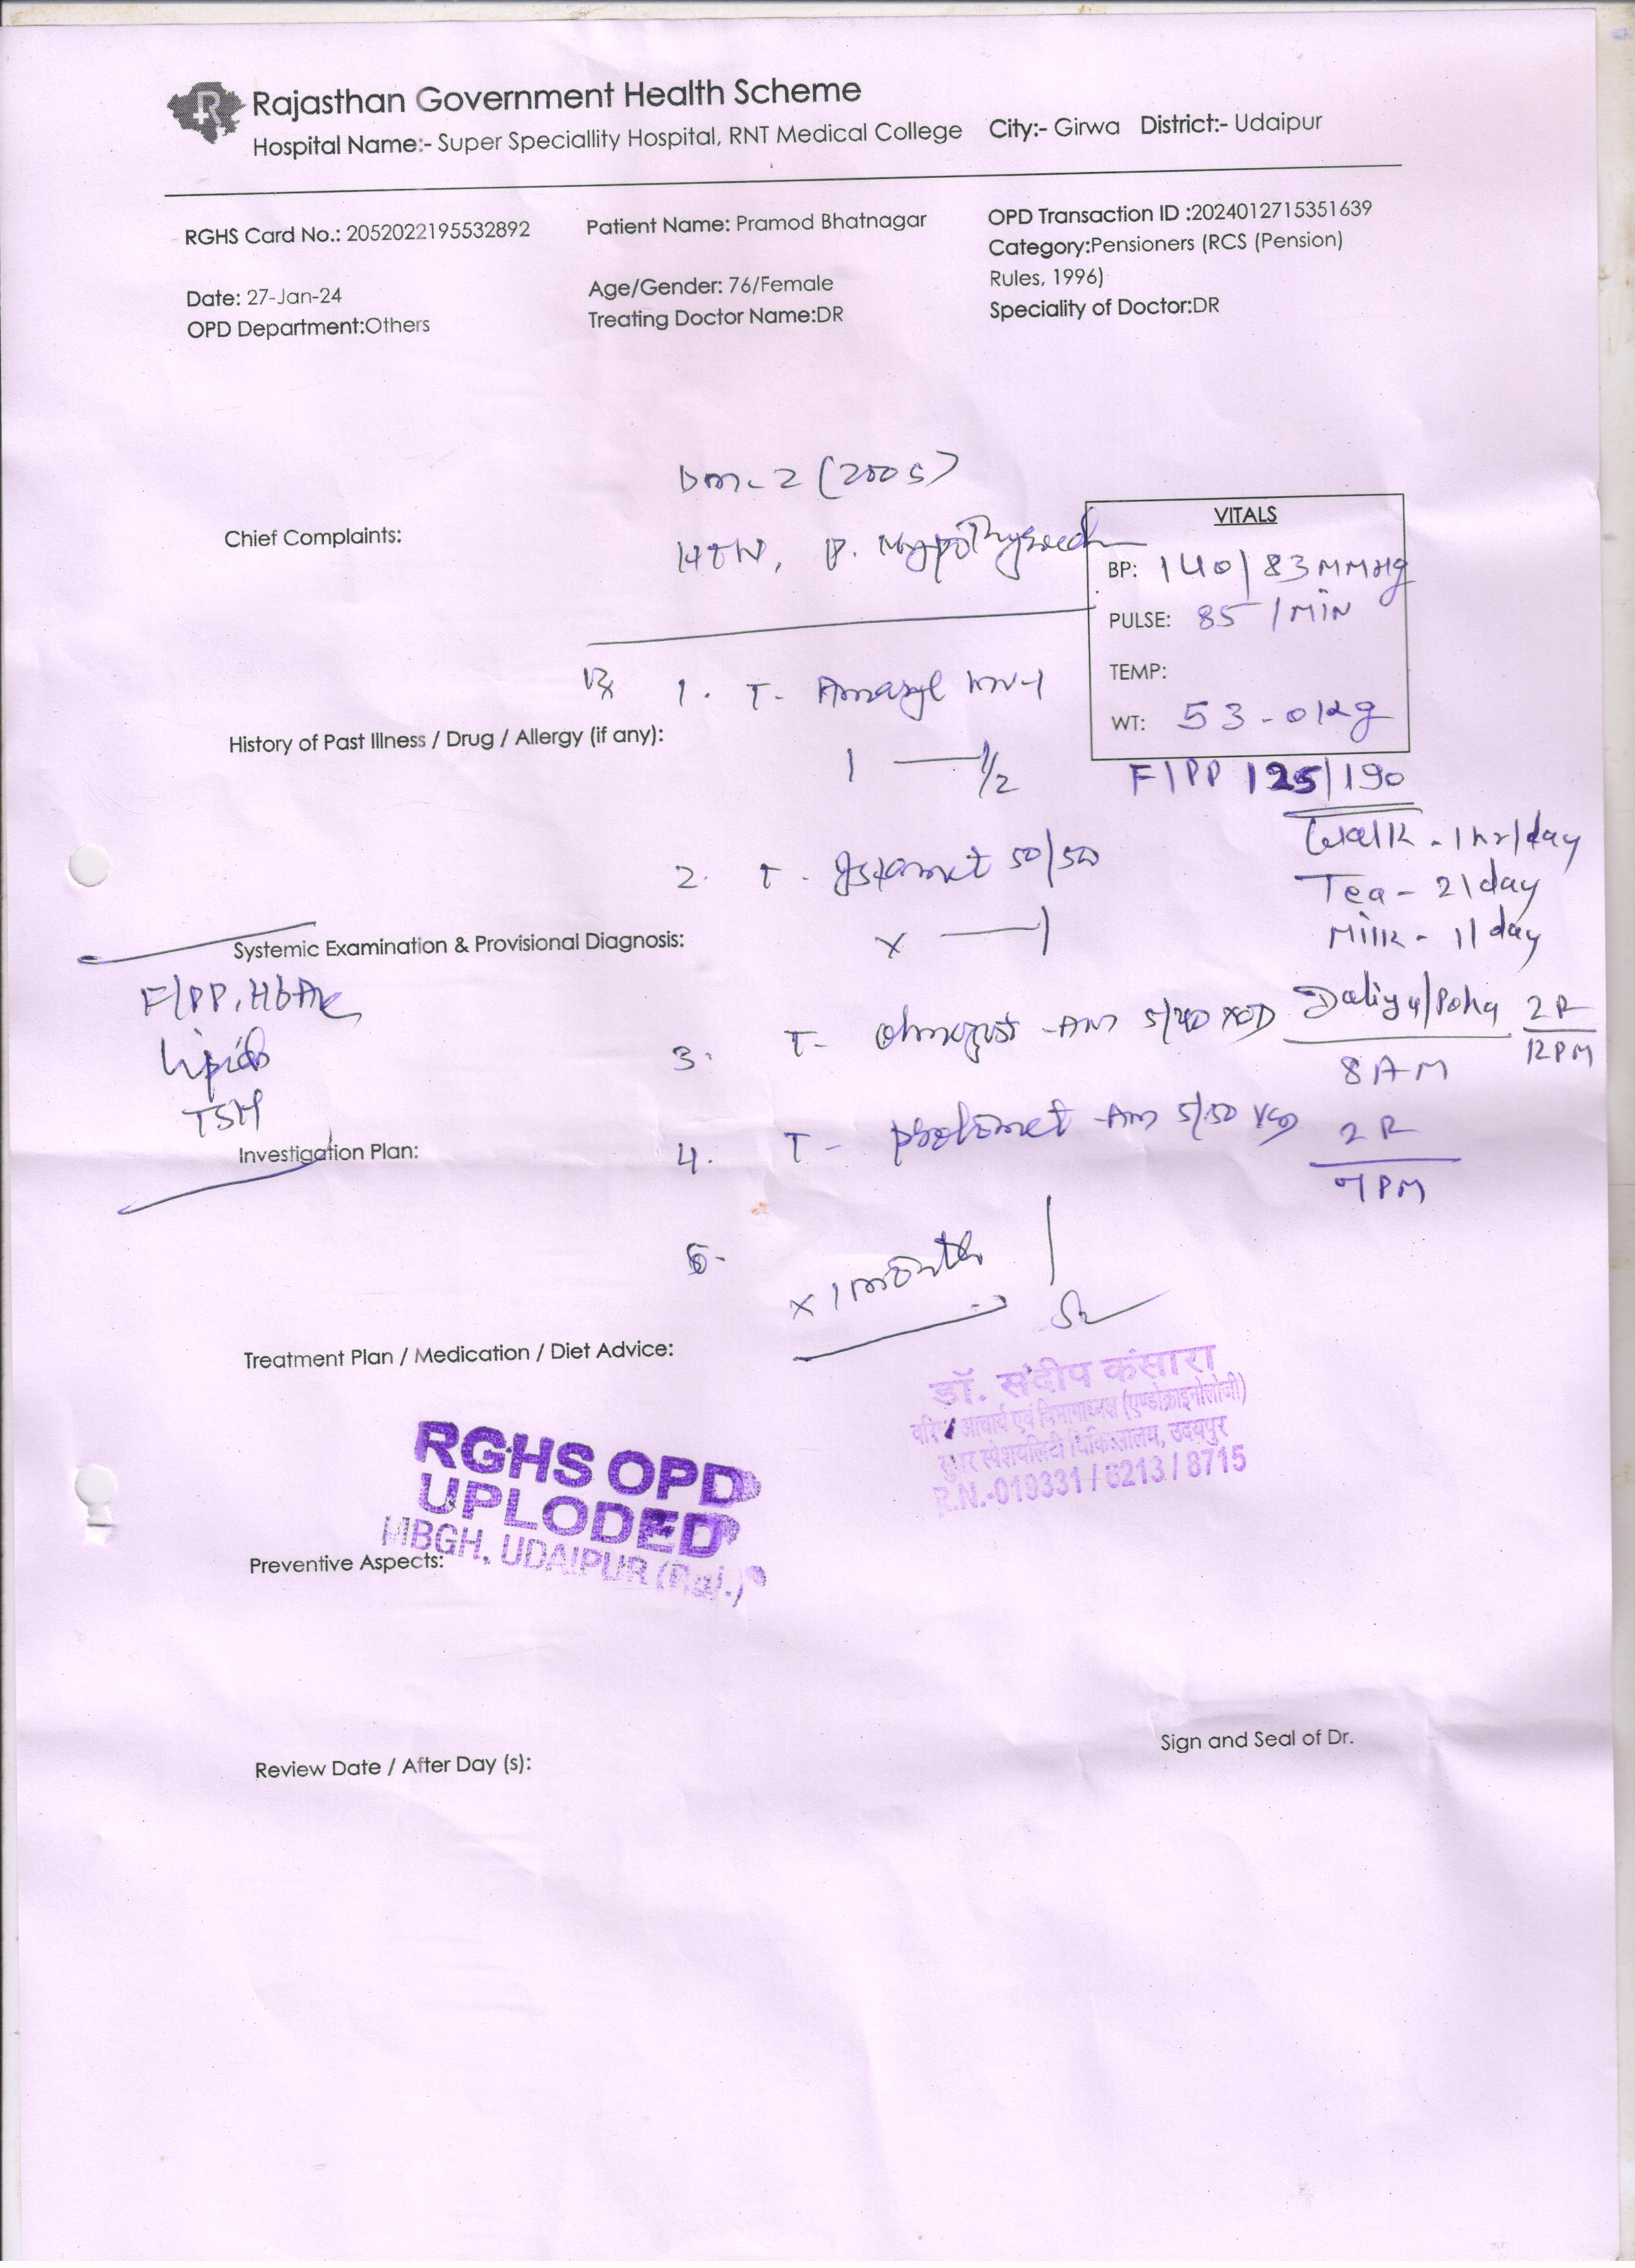 Rajasthan Government Health Scheme
Hospital Name:- Super Speciallity Hospital, RNT Medical College City:- Girwa District:- Udaipur
RGHS Card No.: 2052022195532892
Patient Name: Pramod Bhatnagar
OPD Transaction ID :2024012715351639
Category:Pensioners (RCS (Pension)
Rules, 1996)
Date: 27-Jan-24
Age/Gender: 76/Female
OPD Department:Others
Treating Doctor Name:DR
Speciality of Doctor:DR
Dm-2 (2005)
Chief Complaints:
HTN, P. Hypothyroid
VITALS
BP: 140/83 MMHg
PULSE: 85 /MIN
TEMP:
WT: 53-0Kg
F/PP 125/190
Rx 1. T- Amaryl mv-1
History of Past Illness / Drug / Allergy (if any):
1 — 1/2
Walk - 1hr/day
2. T- Istamet 50/500
Tea - 2/day
x — 1
Milk - 1/day
Systemic Examination & Provisional Diagnosis:
F/PP, HbA1c
Lipids
TSH
3. T- -AM 5/40 XOD
Daliya/Poha
8AM
2R
12PM
4. T- prolomet -AM 5/50
2R
7PM
Investigation Plan:
5-
x 1 month
Treatment Plan / Medication / Diet Advice:
डॉ. संदीप कंसारा
वरिष्ठ आचार्य एवं विभागाध्यक्ष (एण्डोक्राइनोलोजी)
सुपर स्पेशयलिटी चिकित्सालय, उदयपुर
R.N.-019331 / 6213 / 8715
RGHS OPD
UPLODED
MBGH, UDAIPUR (Raj.)
Preventive Aspects:
Sign and Seal of Dr.
Review Date / After Day (s):